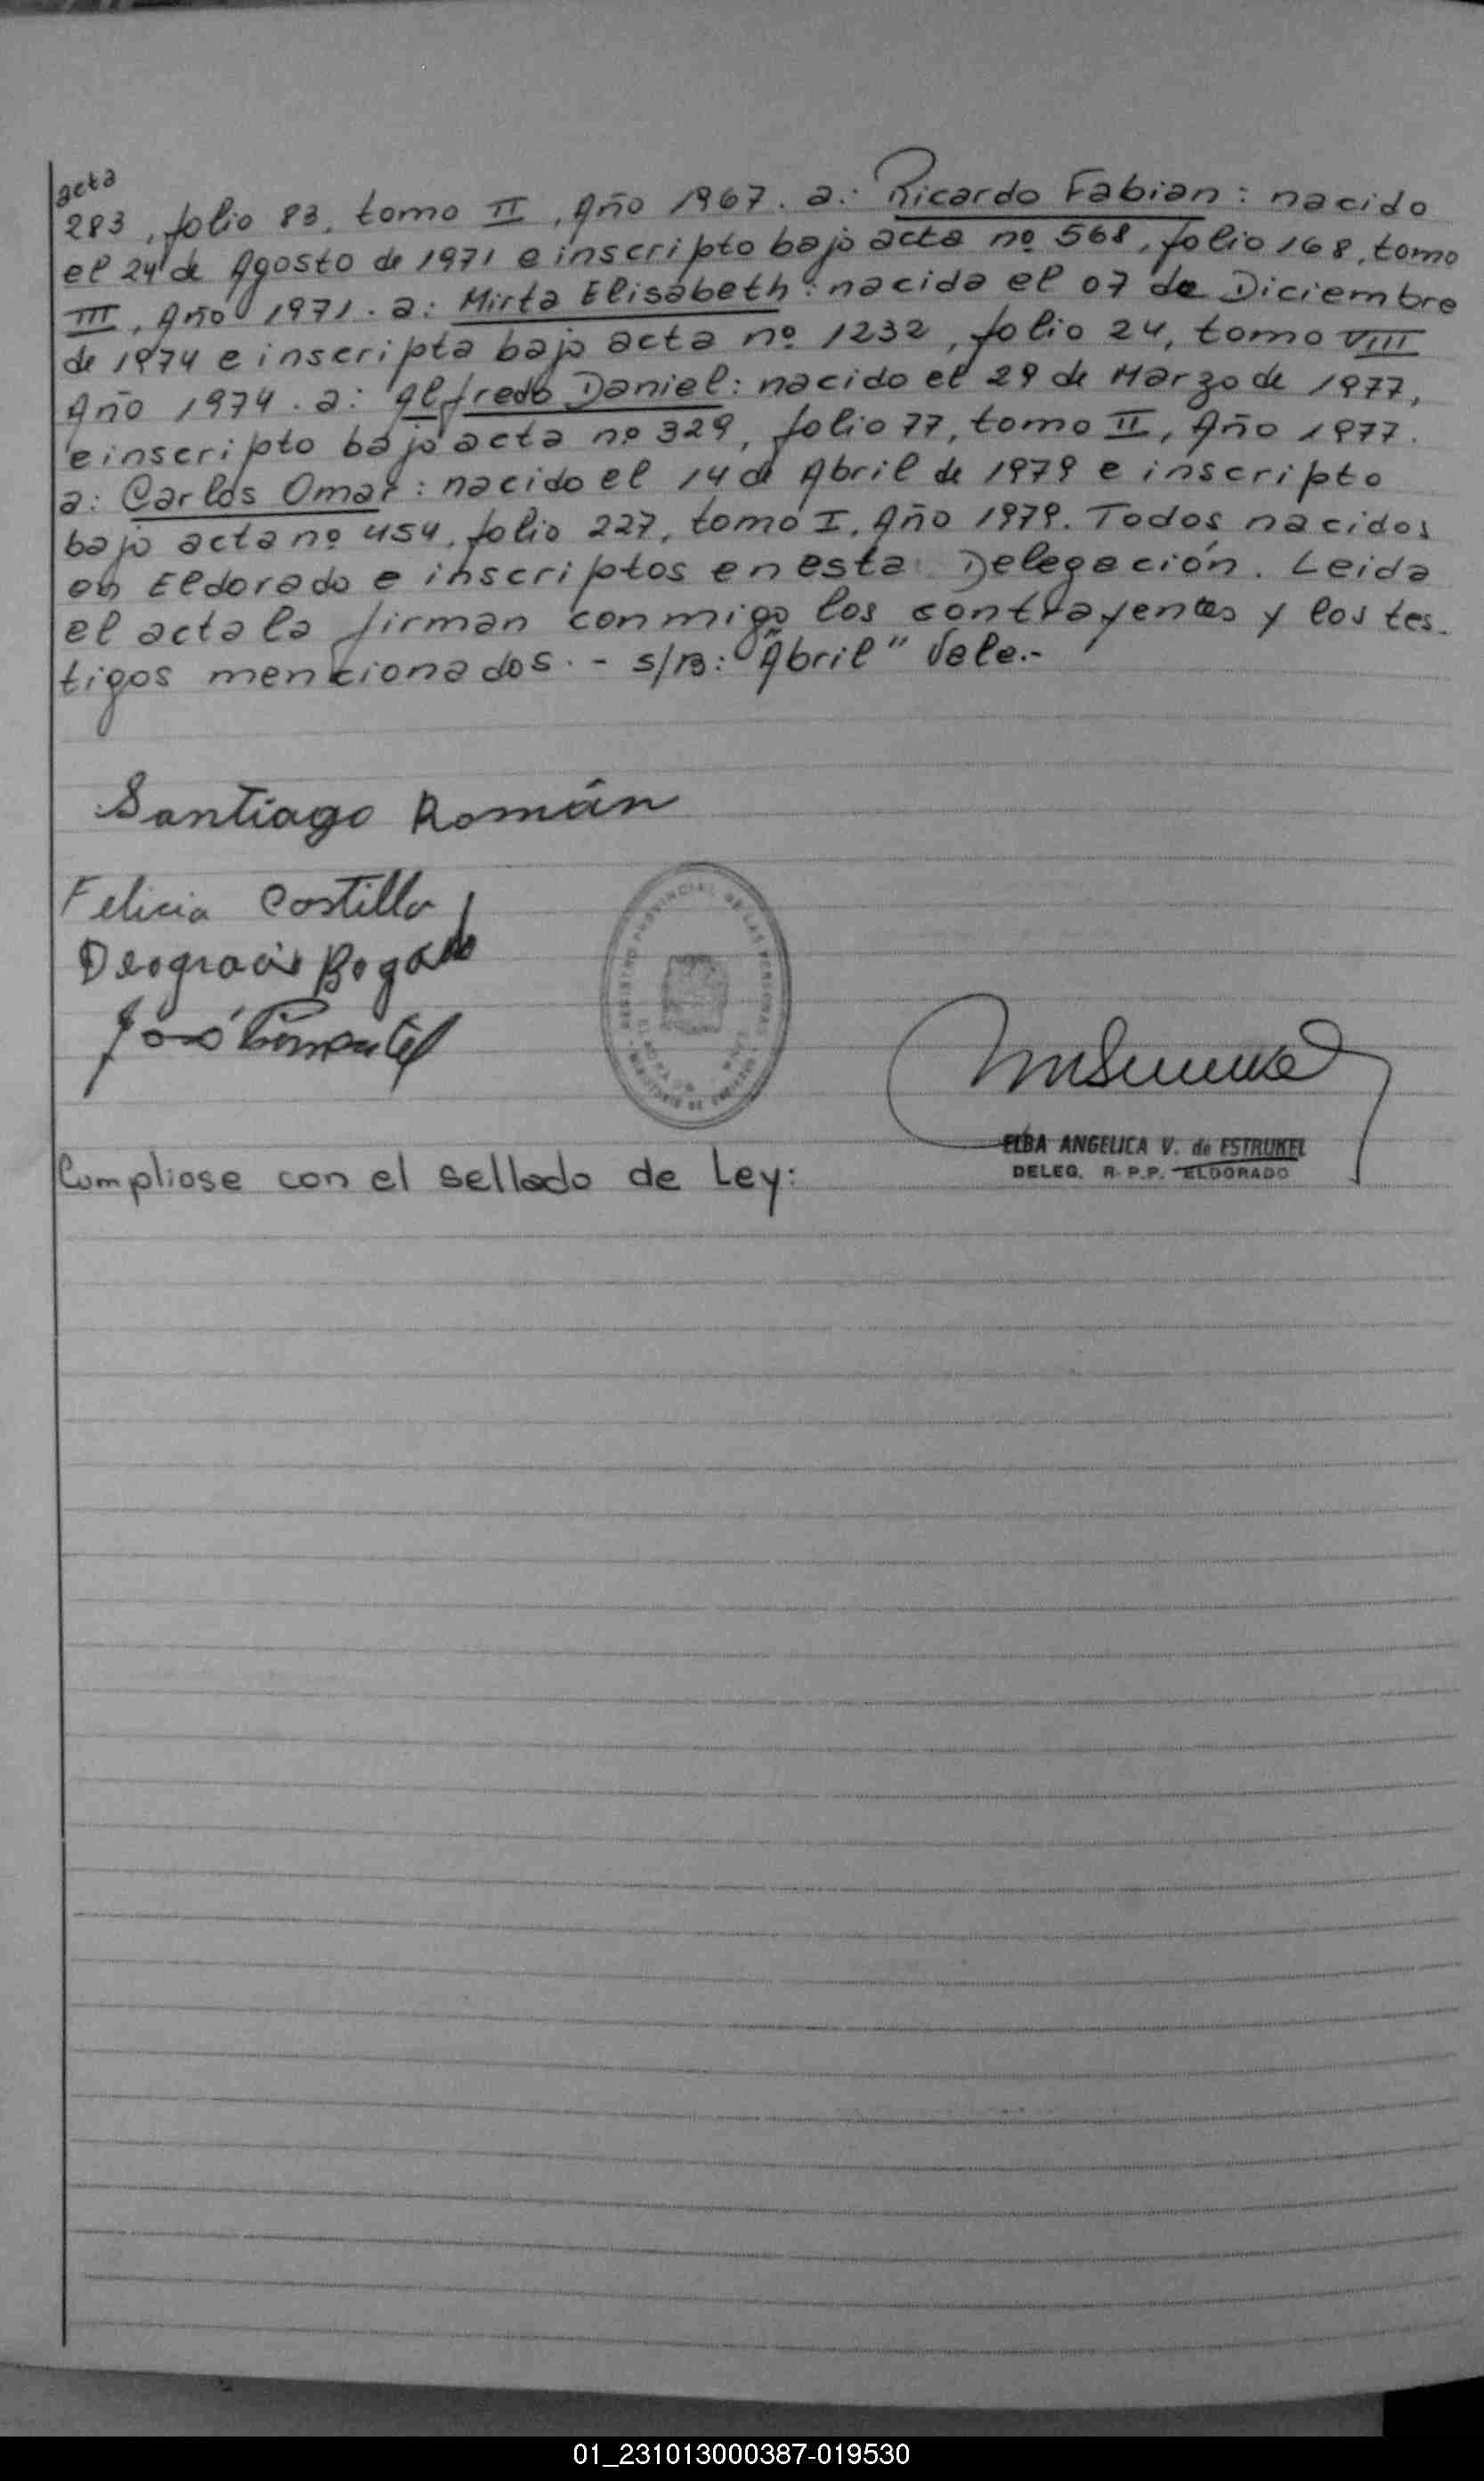 acta
283, folio 83, tomo II, Año 1967. a: Ricardo Fabian: nacido
el 24 de Agosto de 1971 e inscripto bajo acta nº 568, folio 168, tomo
III, Año 1971. a: Mirta Elisabeth: nacida el 07 de Diciembre
de 1974 e inscripta bajo acta nº 1232, folio 24, tomo VIII
Año 1974. a: Alfredo Daniel: nacido el 29 de Marzo de 1977,
e inscripto bajo acta nº 329, folio 77, tomo II, Año 1977.
a: Carlos Omar: nacido el 14 de Abril de 1979 e inscripto
bajo acta nº 454, folio 227, tomo I, Año 1979. Todos nacidos
en Eldorado e inscriptos en esta Delegación. Leida
el acta la firman conmigo los contrayentes y los tes-
tigos mencionados. - S/B: "Abril" Vale.-
Santiago Román
Felicia Costilla
Deogracis Bogado
José Pimentel
REGISTRO PROVINCIAL DE LAS PERSONAS
ELBA ANGELICA V. de ESTRUKEL
DELEG. R. P.P. ELDORADO
Cumpliose con el sellado de Ley:
01_231013000387-019530